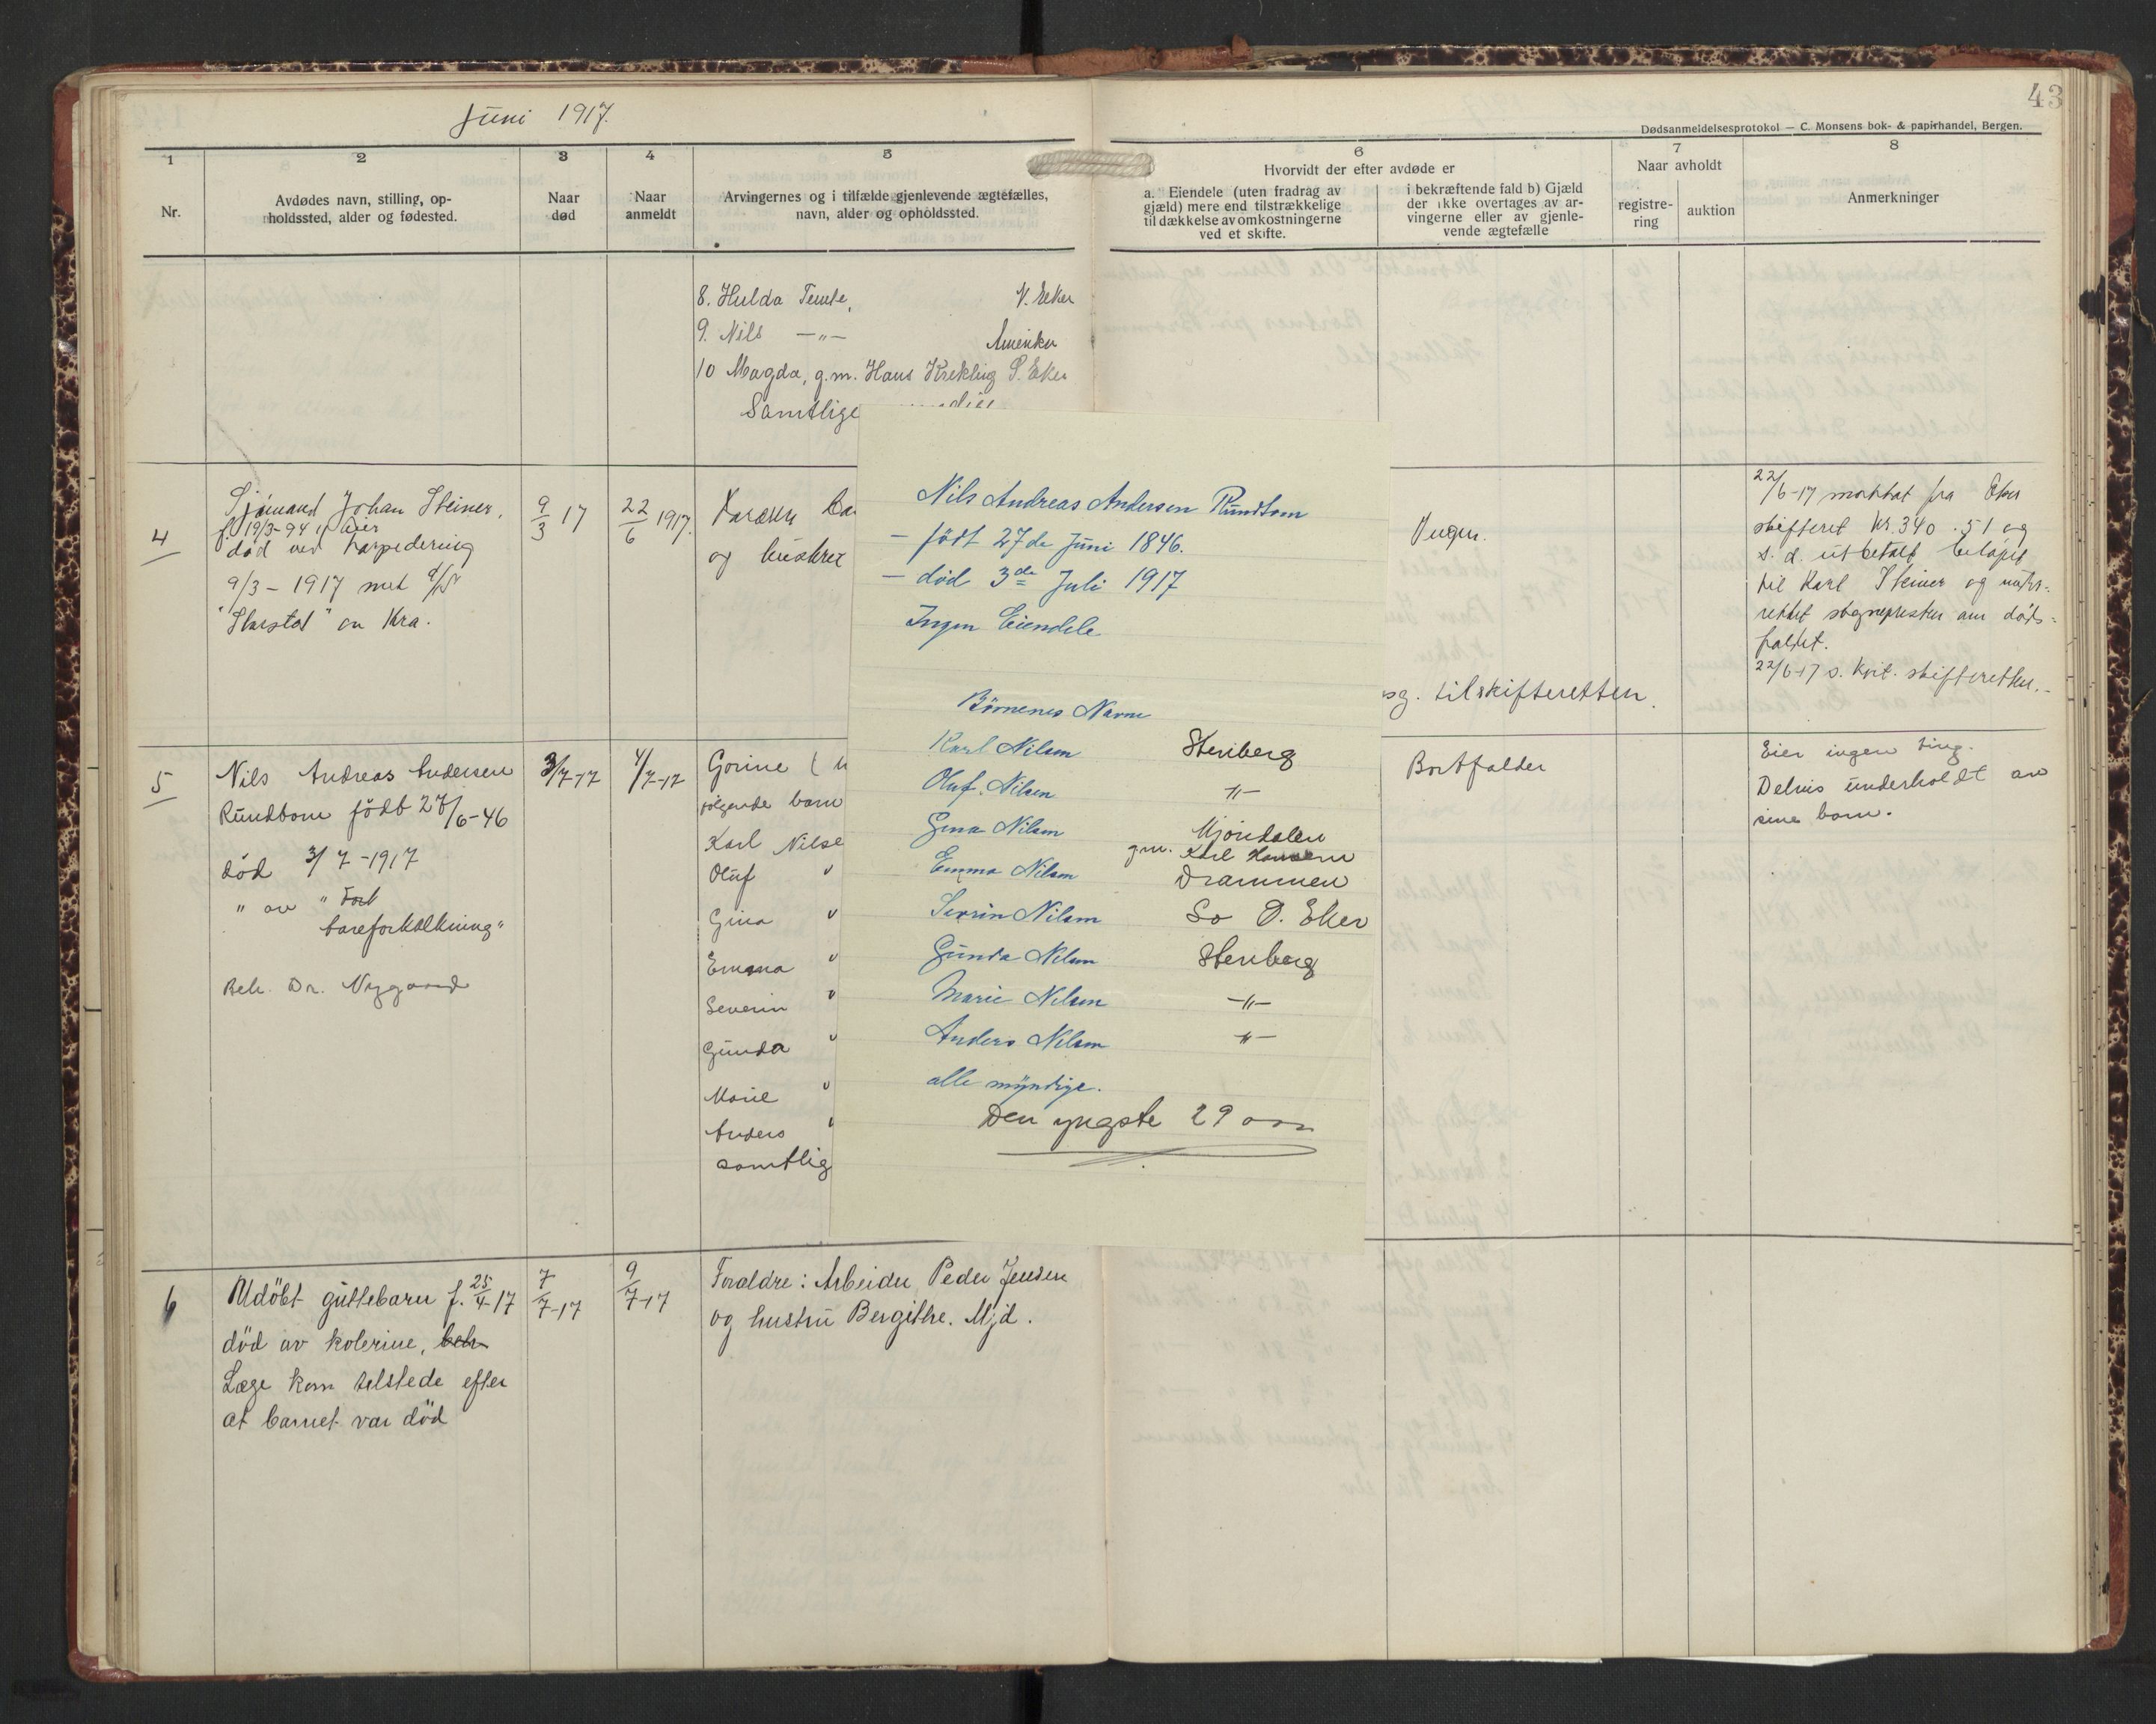 Juni 1917.
43
Dødsanmeldelsesprotokol — C. Monsens bok- & papirhandel, Bergen.
1
2
3
4
5
6
7
8
Nr.
Avdødes navn, stilling, op-
holdssted, alder og fødested.
Naar
død
Naar
anmeldt
Arvingernes og i tilfælde gjenlevende ægtefælles,
navn, alder og opholdssted.
Hvorvidt der efter avdøde er
a. Eiendele (uten fradrag av
gjæld) mere end tilstrækkelige
til dækkelse av omkostningerne
ved et skifte.
i bekræftende fald b) Gjæld
der ikke overtages av ar-
vingerne eller av gjenle-
vende ægtefælle
Naar avholdt
registre-
ring
auktion
Anmerkninger
8. Hulda Temte, N. Eker
9. Nils —"— Amerika
10 Magda, g.m. Hans Krekling S. Eker
Samtlige
4
Sjømand Johan Steiner,
f. 19/3-94 i Eker
død ved torpedering
9/3 - 1917 med d/s
"Storstad" av Kra.
9/3 17
22/6 1917.
og hustru
Ingen.
sg. til skifteretten.
22/6-17 mottat fra Eker
skifteret kr. 340.51 og
s. d. utbetalt beløpet
til Karl Steiner og under-
rettet sogneprester om døds-
faldet.
22/6-17 s. kvit. skifteretten.-
5
Nils Andreas Andersen
Rundtom født 27/6-46
død 3/7-1917
" av "
areforkalkning"
Beh. Dr. Nygaard
3/7-17
4/7-17
Gorine (
følgende barn
Karl Nilse
Oluf "
Gina "
Emma "
Severin "
Gunda "
Marie "
Anders "
samtlig
Bortfalder
Eier ingen ting.
Delvis underholdt av
sine barn.
Nils Andreas Andersen Rundtom
— født 27de Juni 1846.
— død 3de Juli 1917
Ingen Eiendele
Børnenes Navne
Karl Nilsen Stenberg
Oluf Nilsen —"—
Gina Nilsen Mjøndalen
gm. Karl Hansen
Emma Nilsen Drammen
Severin Nilsen So Ø. Eker
Gunda Nilsen Stenberg
Marie Nilsen —"—
Anders Nilsen —"—
alle myndige.
Den yngste 29 aar
6
Udöbt guttebarn f. 25/4-17
død av kolerine, beh
Læge kom tilstede efter
at barnet var död
7/7-17
9/7-17
Foraldre: Arbeider Peder Jensen
og hustru Bergithe. Mjd.